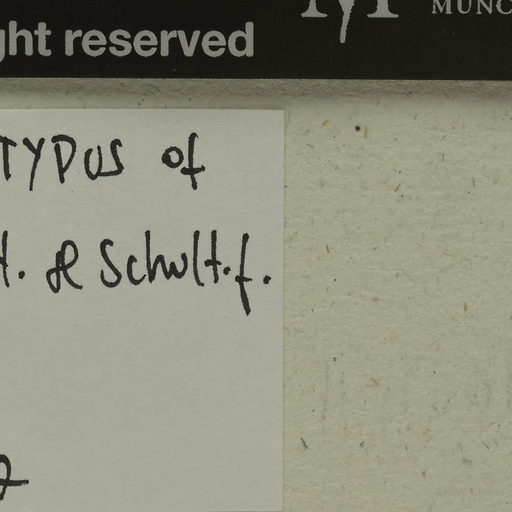 MUNC
ght reserved
TYPUS of
t. & Schult.f.